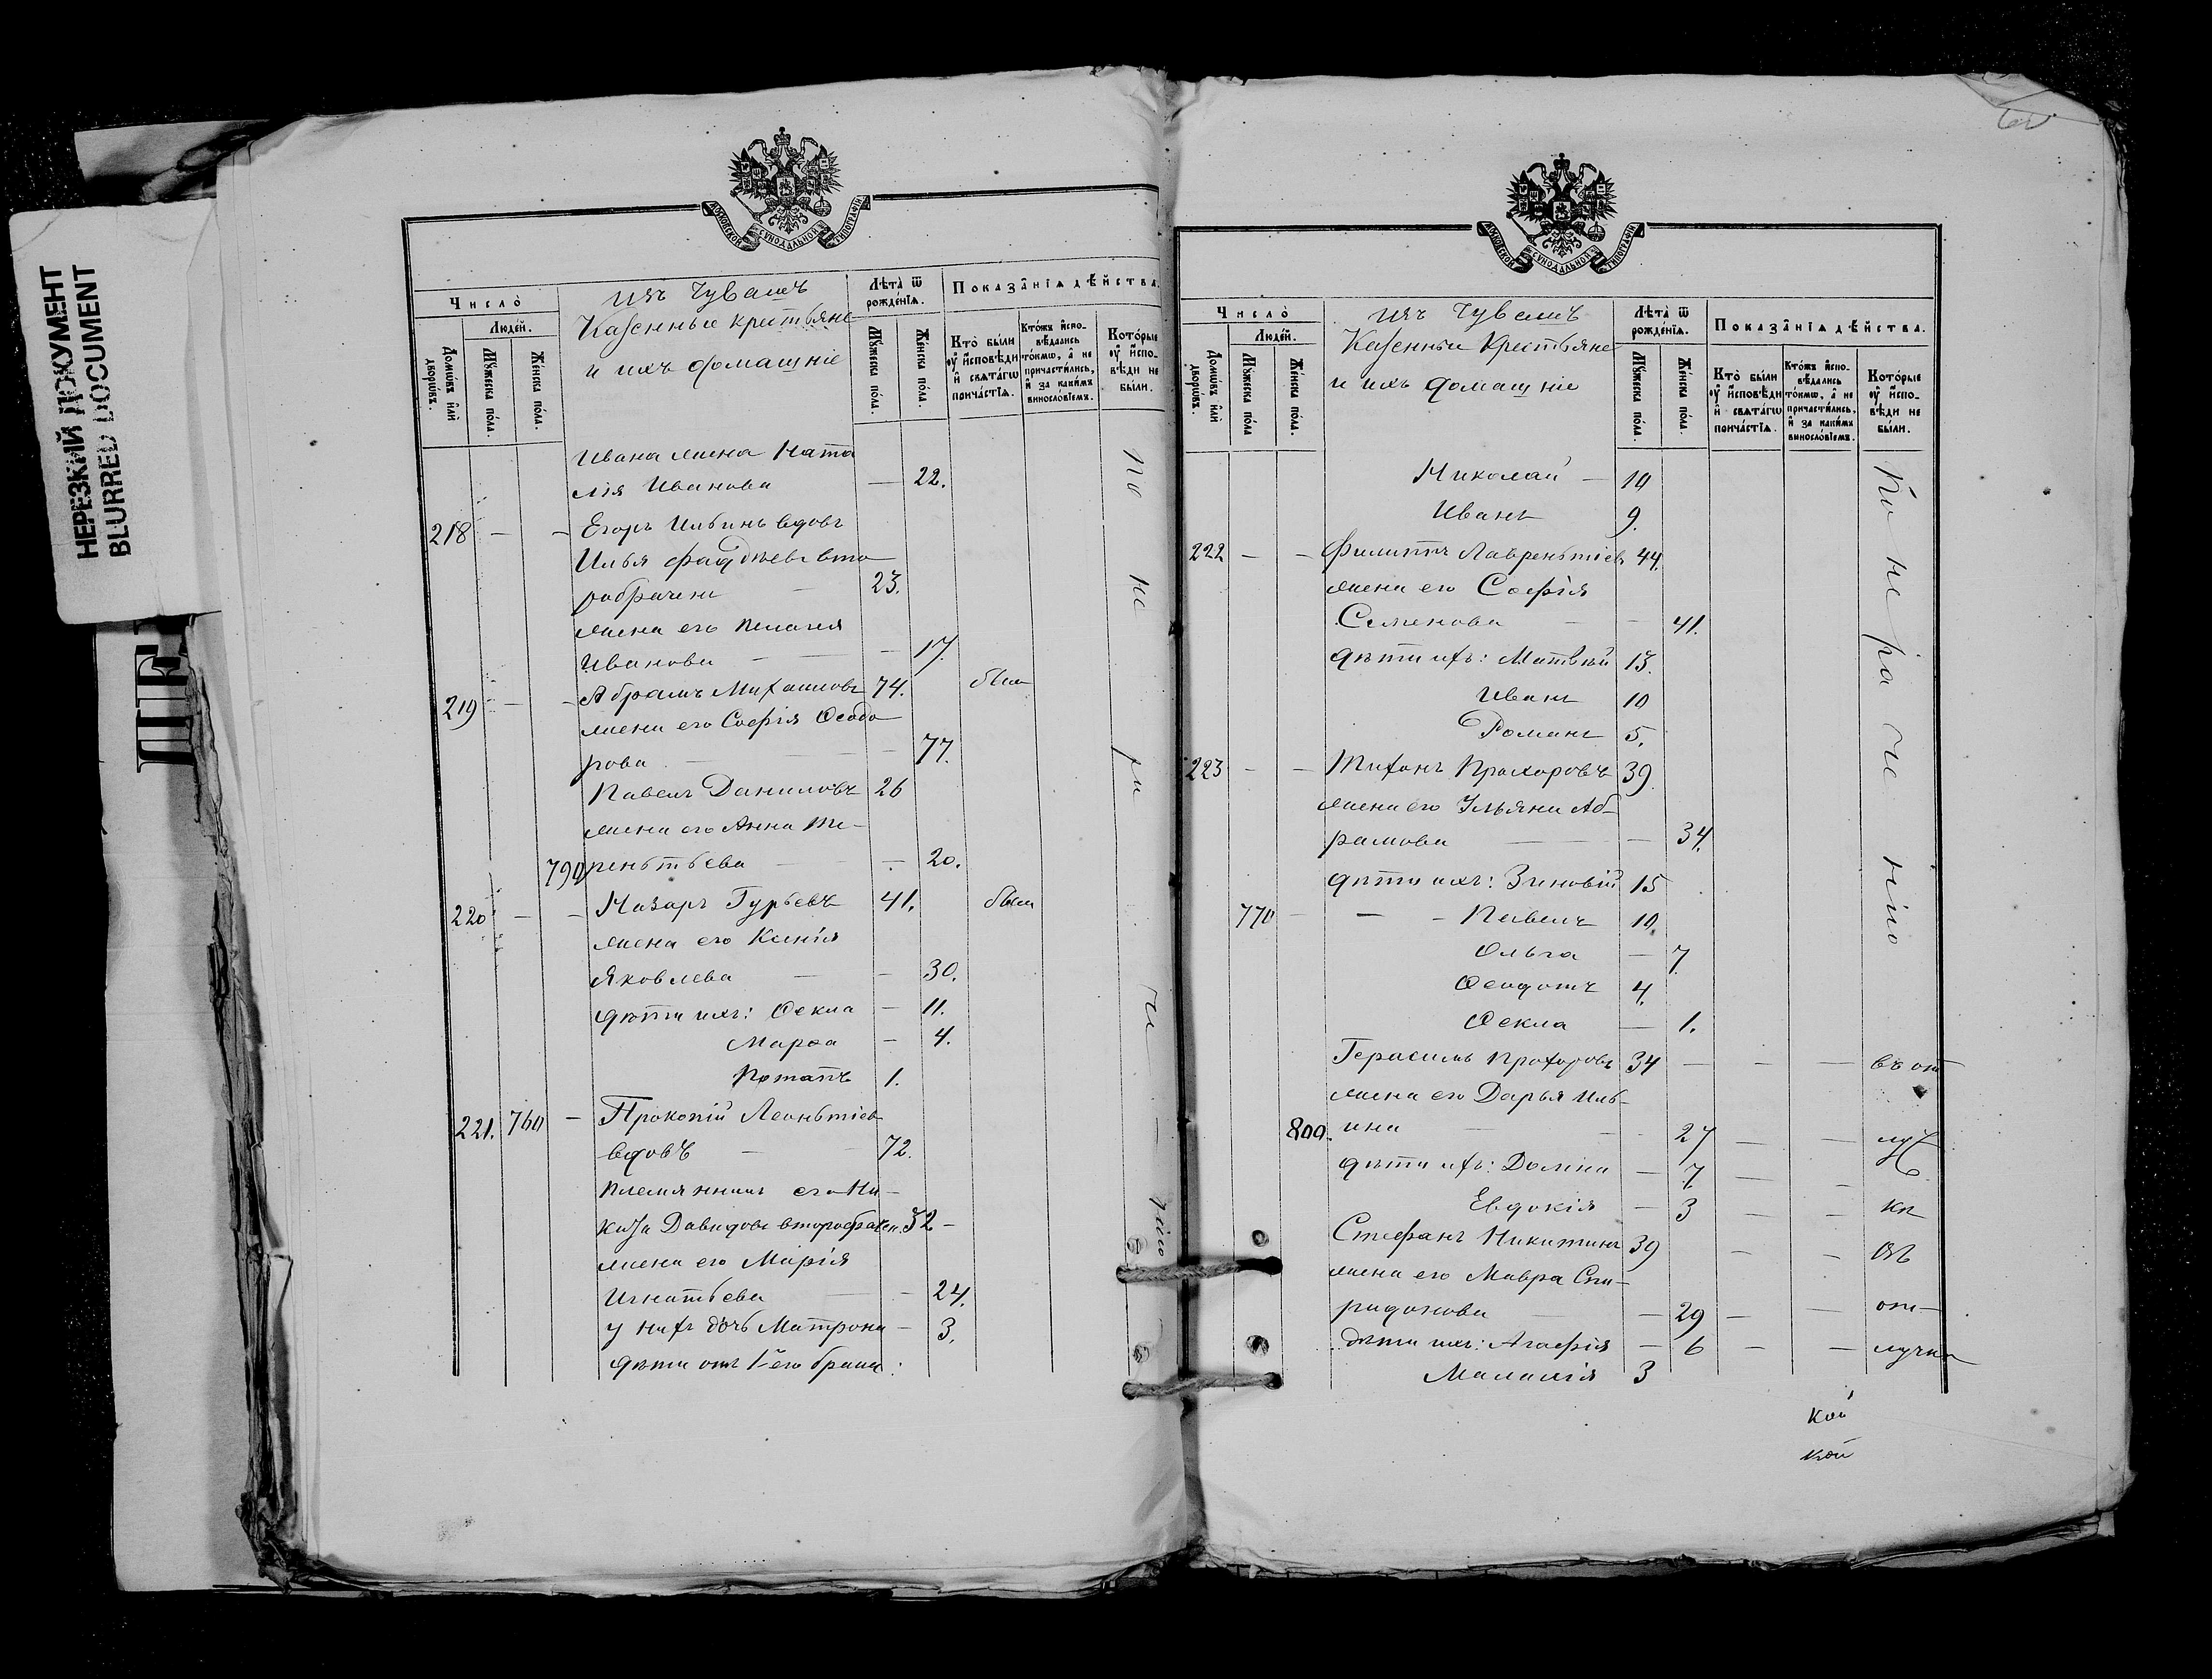 НЕРЕЗКИЙ ДОКУМЕНТ
BLURRED DOCUMENT
МОСКОВСКОЙ СѴНОДАЛЬНОЙ ТИПОГРАФІИ
Число̀
Людей.
Домѡвъ или дворѡвъ.
Мꙋжеска пола.
Женска пола.
изъ Чувашъ
Казенные крестьяне
и ихъ домашніе
Лѣта ѿ рожденїѧ.
Мꙋжеска пола.
Женска пола.
Показанїѧ дѣйства.
Кто были ᲂу исповѣди и свѧтагѡ причастїѧ.
Ктожъ исповѣдались токмѡ, а не причастились, и за какимъ винословїемъ.
Которые ᲂу исповѣди не были.
Ивана жена Ната
лія Иванова — 22.
218 — — Егоръ Ильинъ вдовъ
Илья Фаддѣевъ вто
робрачен — 23.
жена его Пелагея
Иванова — — 17.
219 — — Абрамъ Михаиловъ 74. был
жена его Софія Ѳеодо
рова — — 77.
Павелъ Даниловъ 26
жена его Анна Те-
790 рентьева — — 20.
220 — — Назаръ Гурьевъ 41. были
жена его Ксенія
Яковлева — — 30.
дѣти ихъ: Ѳекла — 11.
Марѳа — 4.
Потапъ 1.
221. 760 — Прокопій Леонтіев
вдовъ — 72.
племянникъ его Ни-
кита Давидовъ второбрачен. 32 —
жена его Марія
Игнатьева — 24.
у нихъ дочь Матрона — 3.
дѣти отъ 1-го брака:
по не ра че нію
МОСКОВСКОЙ СѴНОДАЛЬНОЙ ТИПОГРАФІИ
Число̀
Людей.
Домѡвъ или дворѡвъ.
Мꙋжеска пола
Женска пола.
изъ Чувашъ
Казенныи Крестьяне
и ихъ домашніе
Лѣта ѿ рожденїѧ.
Мꙋжеска пола.
Женска пола.
Показанїѧ дѣйства.
Кто были ᲂу исповѣди и свѧтагѡ причастїѧ.
Ктожъ исповѣдались токмѡ, а не причастились, и за какимъ винословїемъ.
Которые ᲂу исповѣди не были.
Николай — 14
Иванъ 9.
222 — — Филиппъ Лаврентьіевъ 44.
жена его Софія
Семенова — — 41.
дѣти ихъ: Матвѣй 13.
Иванъ 10
Романъ 5.
223 — — Тихонъ Прохоровъ 39.
жена его Ульяна Аб-
рамова — — 34.
дѣти ихъ: Зиновій 15
770 — — — Павелъ 10.
Ольга — 7
Ѳеодотъ 4.
Ѳекла — 1.
Герасимъ Прохоровъ 34 — — — въ от
жена его Дарья Иль-
800. ина — — 27 — — луч
дѣти ихъ: Домна — 7. — —
Евдокія — 3 — — кѣ
Стефанъ Никитинъ 39 — — въ
жена его Мавра Спи-
ридонова — — 29 — — от-
дѣти ихъ: Агафія — 6 — — лучкѣ
Маламія 3
по не ра че нію
кой
кой